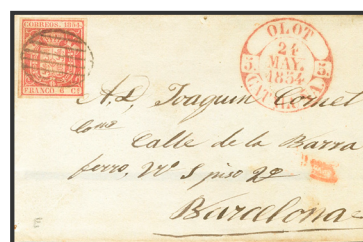 CORREOS. 1854.
FRANCO. 6 Cs
OLOT
24
MAY.
1854
5 CATALUÑA 5
A D. Joaquin Comet
Calle de la Barra
ferro, nº 8 piso 2º
Barcelona